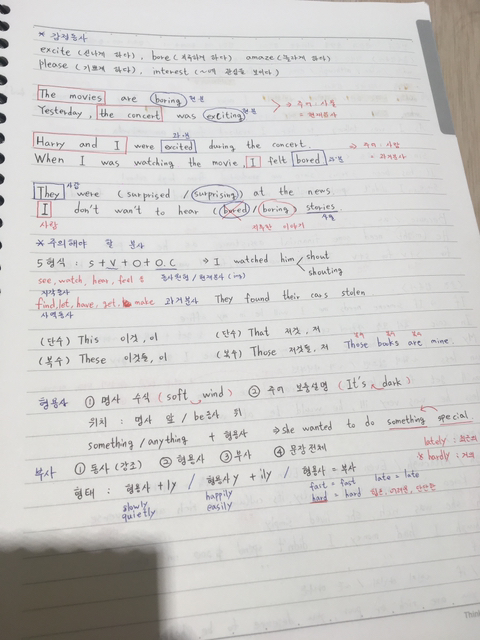 * 감정동사
excite (신나게 하다), bore (지루하게 하다) amaze (놀라게 하다)
please (기쁘게 하다), interest (~에 관심을 보이다)
The movies are boring 현분
Yesterday, the concert was exciting 현분 → 주어 : 사물 = 현재분사
과분
Harry and I were excited during the concert. → 주어 : 사람
When I was watching the movie, I felt bored 과분 = 과거분사
They 사람 were (surprised / surprising) at the news
I don't wan't to hear (bored / boring) stories
사람 지루한 이야기 사물
* 주의해야 할 분사
5형식 : S + V + O + O.C → I watched him shout
shouting
see, watch, hear, feel 동사원형 / 현재분사 (ing)
지각동사
find, let, have, get, make 과거분사 They found their cars stolen
사역동사
(단수) This 이것, 이 (단수) That 저것, 저
(복수) These 이것들, 이 (복수) Those 저것들, 저 Those books are mine.
형용사 ① 명사 수식 (soft wind) ② 주어 보충설명 (It's dark)
위치 : 명사 앞 / be동사 뒤
something / anything + 형용사 → she wanted to do something special
lately : 최근에
부사 ① 동사 (강조) ② 형용사 ③ 부사 ④ 문장전체 * hardly : 거의
형태 : 형용사 + ly / 형용사 y + ily / 형용사 = 부사
slowly happily fast = fast late = late
quietly easily hard = hard 힘든, 어려운, 단단한
Think